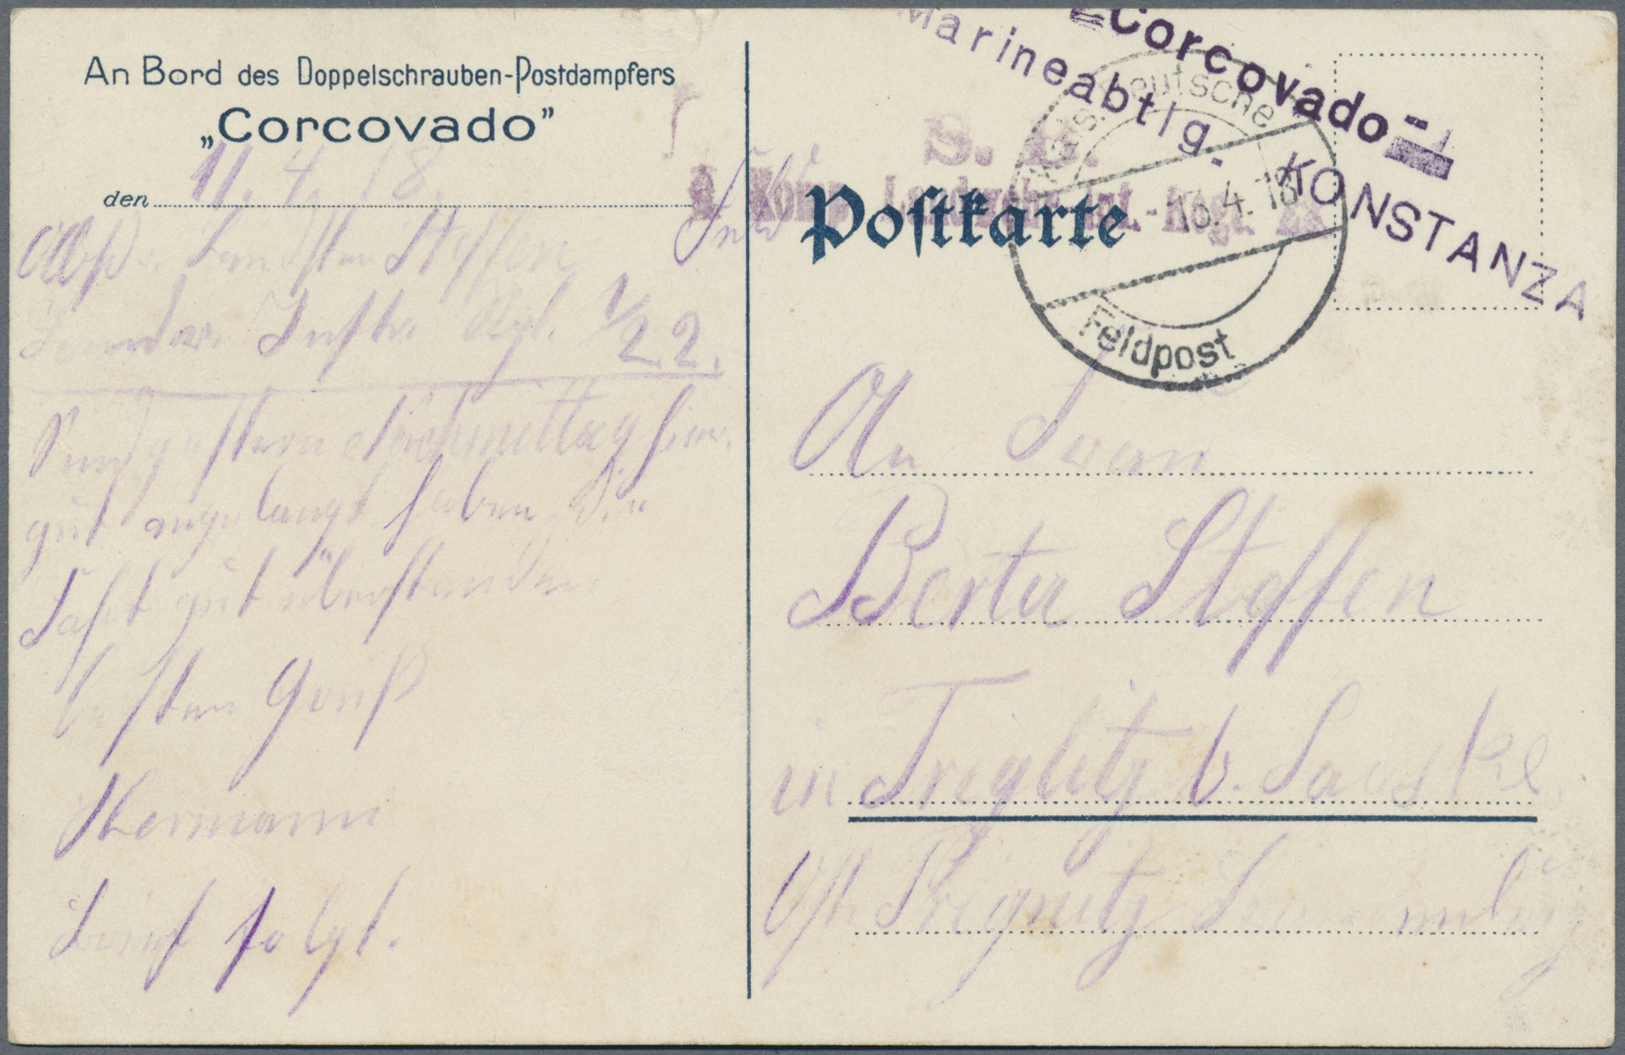 An Bord des Doppelschrauben-Postdampfers
„Corcovado”
den 11. 4. 18.
Landstm Steffen
Inftr. Rgt. 1/22.
Sind gestern Nachmittag hier
gut angelangt haben die
Fahrt gut überstanden
besten Gruß
Hermann
Brief folgt.
Corcovado
Marineabtlg. KONSTANZA
S. B.
Komp. Landwehr-Inf.-Regt. 22
Postkarte
Deutsche
13.4.18
Feldpost
An Frau
Berta Steffen
in Triglitz b.
Ost Prignitz